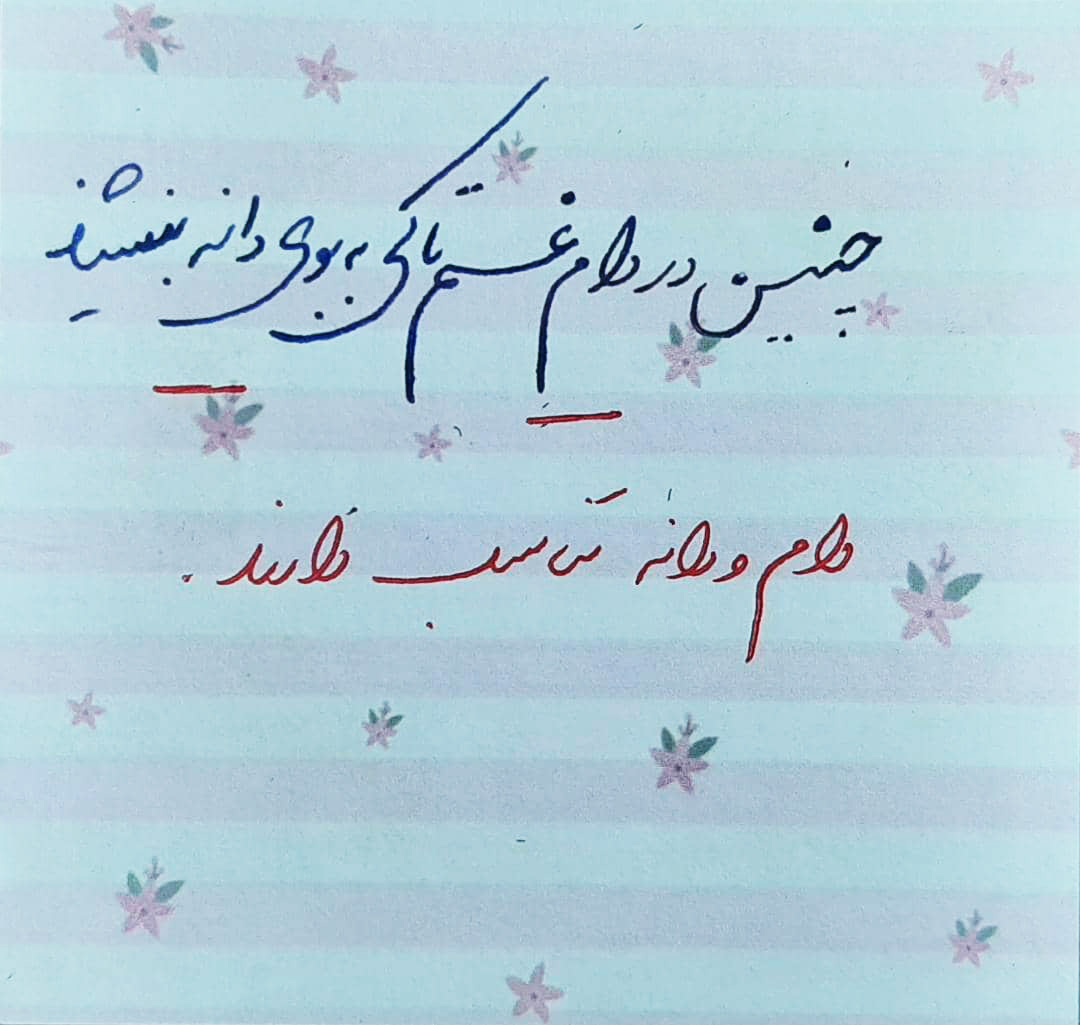 چنین در دام غم تا کی به بوی دانه بنشیند
دام و دانه تناسب دارند .